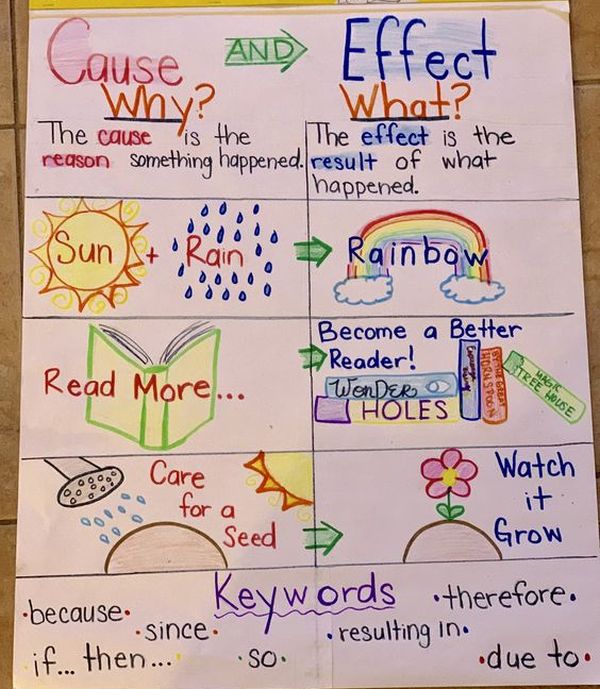 Cause AND Effect
Why?
The cause is the
reason something happened.
What?
The effect is the
result of what
happened.
Sun + Rain
Rainbow
Read More...
Become a Better
Reader!
WONDER
HOLES
MAGIC
TREE HOUSE
Care
for a
Seed
Watch
it
Grow
Keywords
because
since
if... then...
so
therefore
resulting in
due to